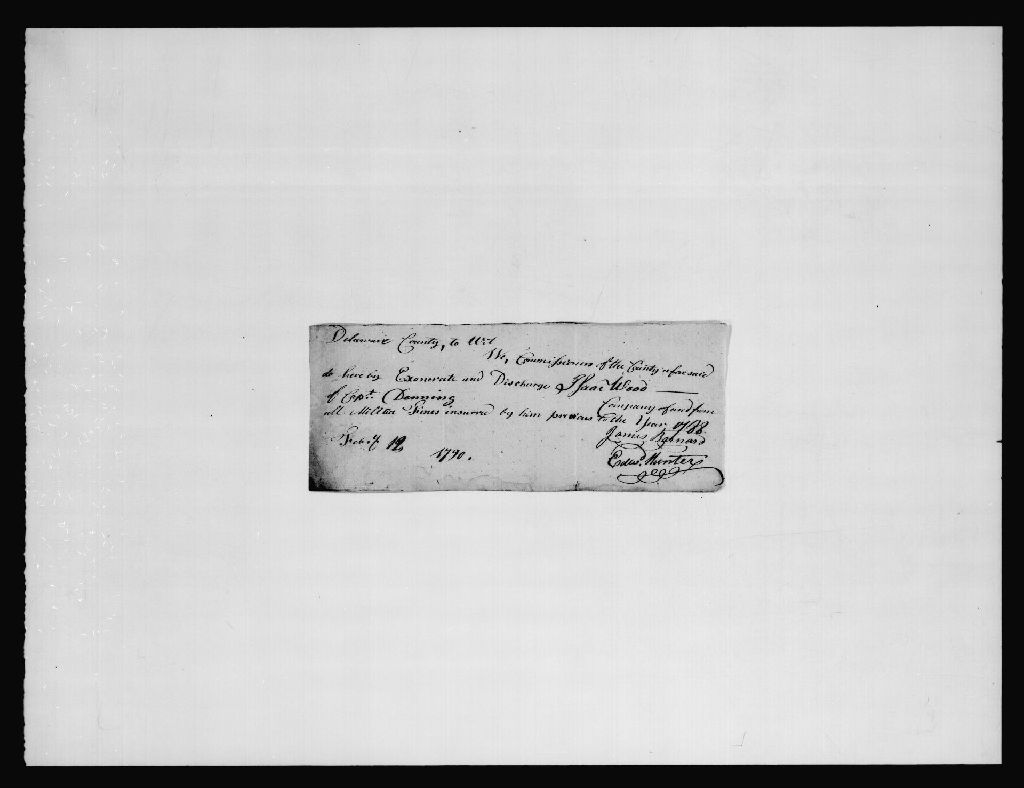 Delaware County, to Wit
We, Commissioners of the County aforesaid
do hereby Exonerate and Discharge Isaac Wood
of Capt. Company of and from
all Militia Fines incurred by him previous to the Year 1788.
Feby. 12 James Barnard
1790. Edwd. Hunter